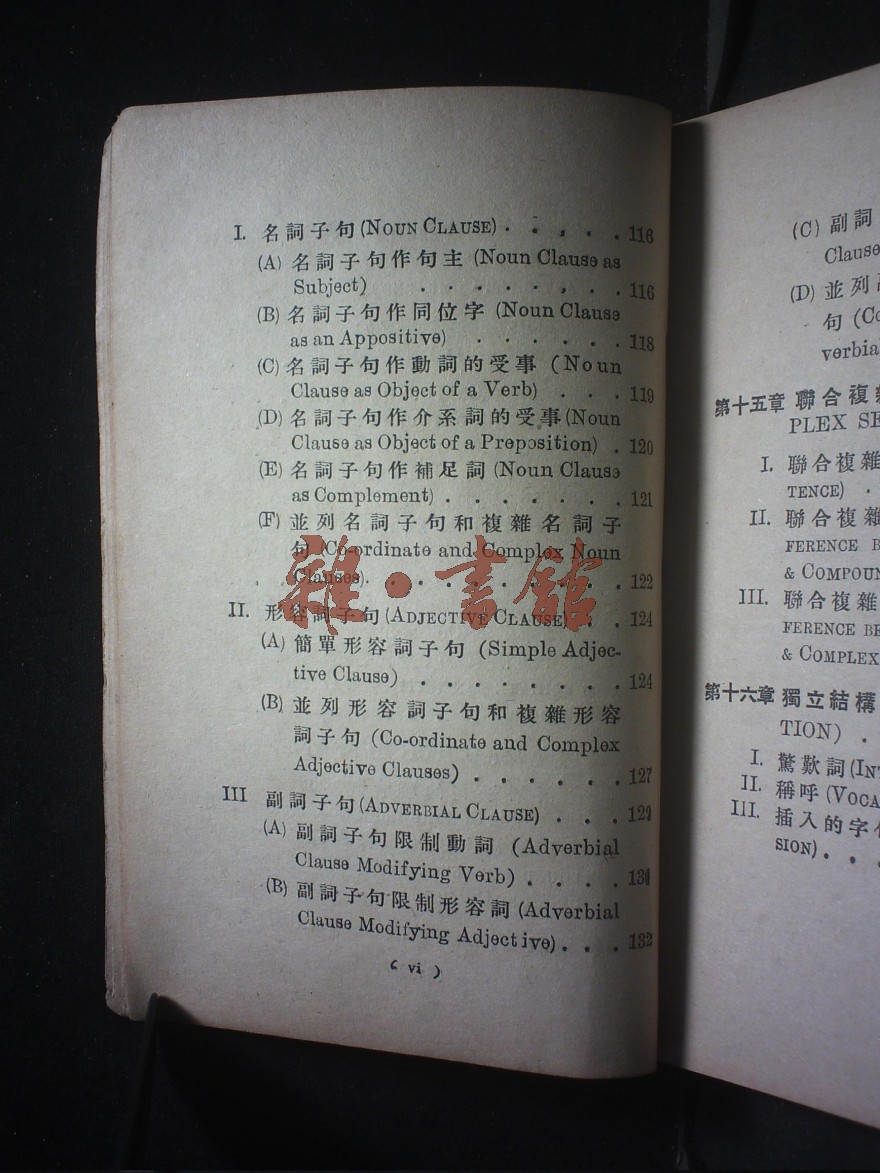 I. 名詞子句(NOUN CLAUSE) . . . . . 116
(A) 名詞子句作句主 (Noun Clause as
Subject) . . . . . . . . 116
(B) 名詞子句作同位字 (Noun Clause
as an Appositive) . . . . . . 118
(C) 名詞子句作動詞的受事 (Noun
Clause as Object of a Verb) . . . 119
(D) 名詞子句作介系詞的受事(Noun
Clause as Object of a Preposition) . 120
(E) 名詞子句作補足詞 (Noun Clause
as Complement) . . . . . . . 121
(F) 並列名詞子句和複雜名詞子
句 (Co-ordinate and Complex Noun
Clauses). . . . . . . . . . 122
II. 形容詞子句(ADJECTIVE CLAUSE) . . 124
(A) 簡單形容詞子句 (Simple Adjec-
tive Clause) . . . . . . . . 124
(B) 並列形容詞子句和複雜形容
詞子句 (Co-ordinate and Complex
Adjective Clauses) . . . . . . 127
III 副詞子句(ADVERBIAL CLAUSE) . . . 129
(A) 副詞子句限制動詞 (Adverbial
Clause Modifying Verb) . . . . 130
(B) 副詞子句限制形容詞(Adverbial
Clause Modifying Adjective) . . . 132
( vi )
雜·書館
(C) 副詞
Clause
(D) 並列
句 (Co
verbia
第十五章 聯合複雜
PLEX SE
I. 聯合複雜
TENCE) .
II. 聯合複雜
FERENCE B
& COMPOUN
III. 聯合複雜
FERENCE BE
& COMPLEX
第十六章 獨立結構
TION) .
I. 驚歎詞(INT
II. 稱呼(VOCA
III. 插入的字
SION) . . .